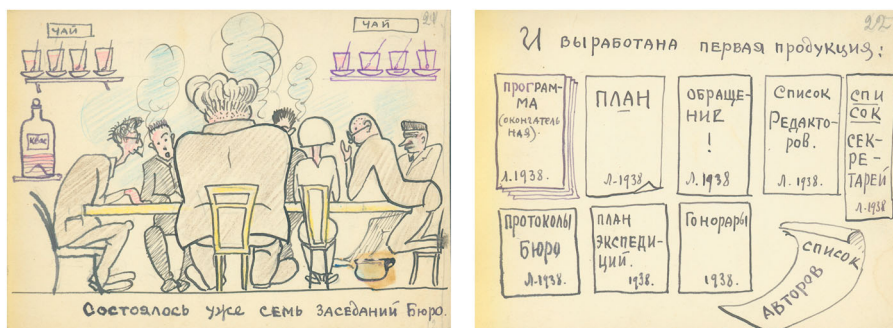 ЧАЙ
ЧАЙ
21
Квас
Состоялось уже семь заседаний Бюро.
22
И выработана первая продукция:
ПРОГРАМ-
МА
(окончатель
ная).
Л.1938.
ПЛАН
Л-1938.
ОБРАЩЕ-
НИЕ
!
Л.1938
Список
Редакто-
ров.
Л.1938.
СПИ
СОК
СЕК-
РЕ-
ТАРЕЙ
Л.1938
ПРОТОКОЛЫ
БЮРО
Л-1938.
ПЛАН
ЭКСПЕДИ-
ЦИЙ.
1938.
Гонорары
1938.
СПИСОК
АВТОРОВ